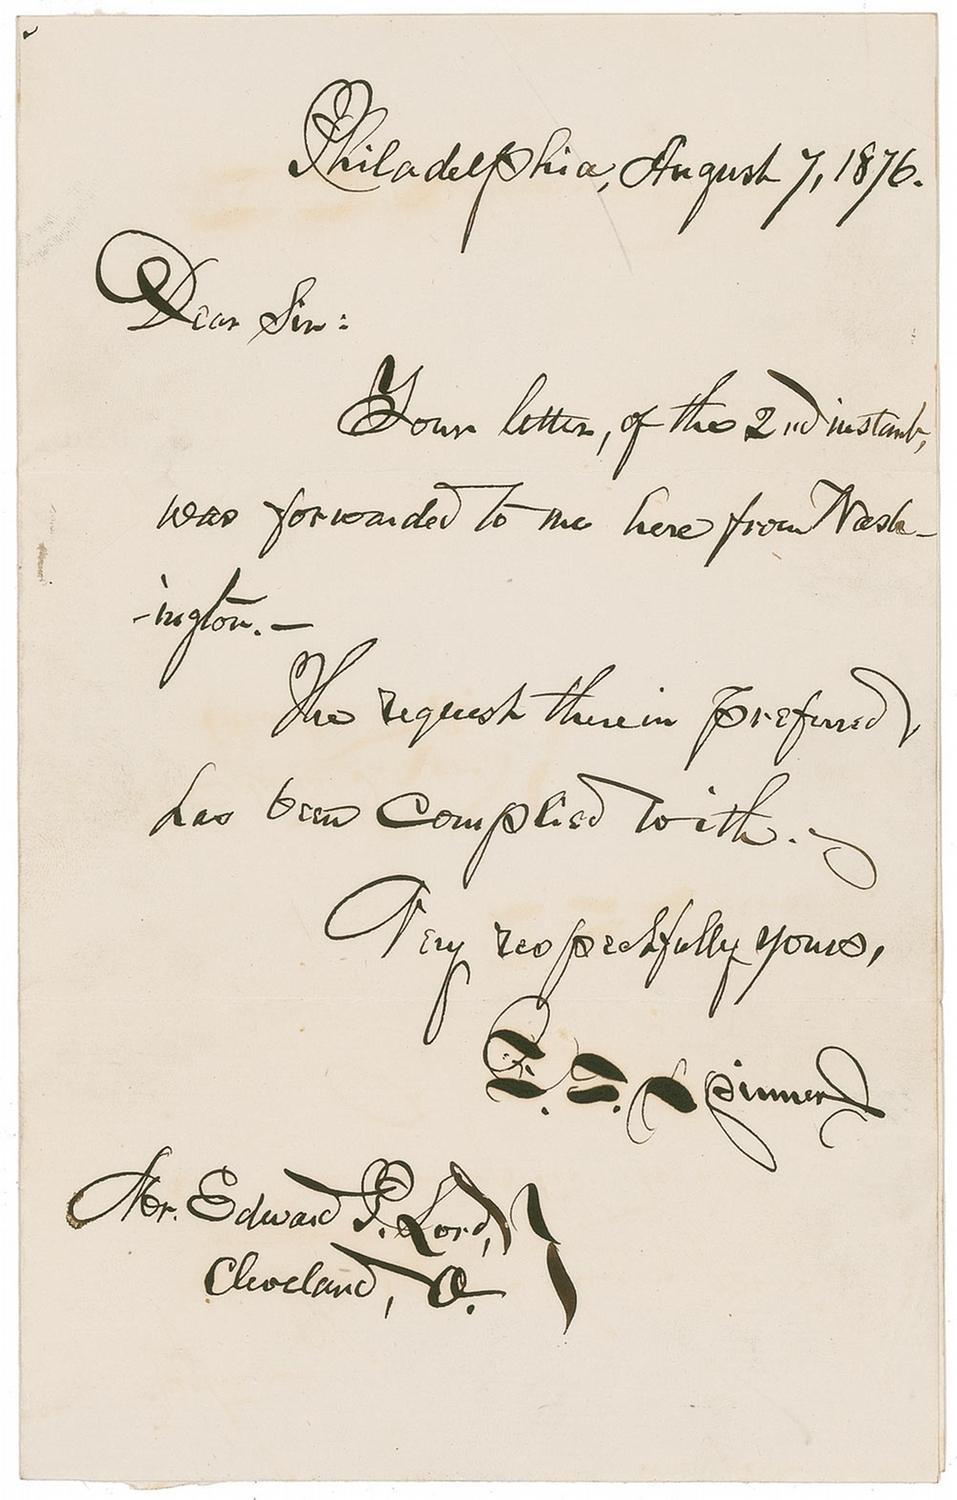 Philadelphia, August 7, 1876.
Dear Sir:
Your letter, of the 2nd instant,
was forwarded to me here from Wash-
-ington. —
The request therein preferred,
has been complied with. —
Very respectfully yours,
F. E. Spinner
Mr. Edward P. Lord,
Cleveland, O.